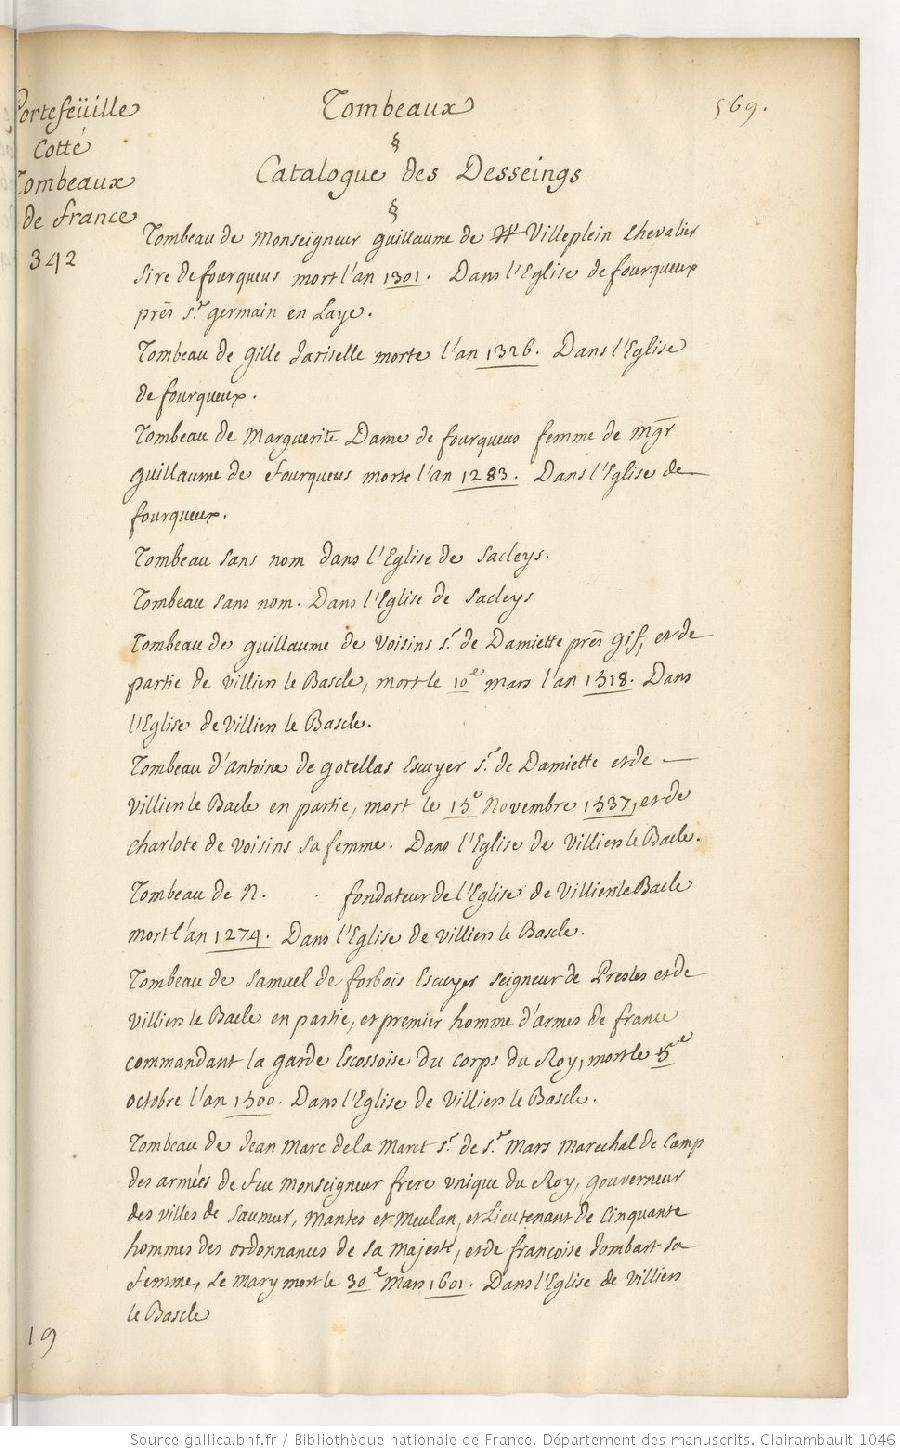 Portefeüille
Cotté
Tombeaux
de france
342
Tombeaux
569.
§
Catalogue des Desseings
§
Tombeau de Monseigneur guillaume de Villeplein Chevalier
Sire de fourqueus mort l'an 1301. Dans l'Eglise de fourqueux
prés St germain en Laye.
Tombeau de gille morte l'an 1326. Dans l'Eglise
de fourqueux.
Tombeau de Marguerite Dame de fourqueus femme de mgr
guillaume de fourqueus morte l'an 1283. Dans l'Eglise de
fourqueux.
Tombeau sans nom dans l'Eglise de Sacleys.
Tombeau sans nom. Dans l'Eglise de Sacleys
Tombeau de guillaume de Voisins sr. de Damiette prés gif, et de
partie de Villiers le Bascle, mort le 10e mars l'an 1518. Dans
l'Eglise de Villiers le Bascle.
Tombeau d'Antoine de gotellas Escuyer sr. de Damiette et de
Villiers le Bacle en partie, mort le 15e Novembre 1537, et de
charlote de Voisins sa femme. Dans l'Eglise de Villiers le Bacle.
Tombeau de N. fondateur de l'Eglise de Villiers le Bacle
mort l'an 1274. Dans l'Eglise de Villiers le Bascle.
Tombeau de Samuel de forbois Escuyer seigneur de Presles et de
Villiers le Bacle en partie, et premier homme d'armes de france
commandant la garde Escossoise du corps du Roy, mort le 5e
octobre l'an 1500. Dans l'Eglise de Villiers le Bascle.
Tombeau de Jean Marc de la sr. de St Mars marechal de Camp
des armées de feu monseigneur frere unique du Roy, gouverneur
des villes de Saumur, Mantes et Meulan, et Lieutenant de Cinquante
hommes des ordonnances de sa majesté, et de françoise sa
femme, Le mary mort le 30e Mars 1601. Dans l'Eglise de Villiers
le Bascle
19
Source gallica.bnf.fr / Bibliothèque nationale de France. Département des manuscrits. Clairambault 1046